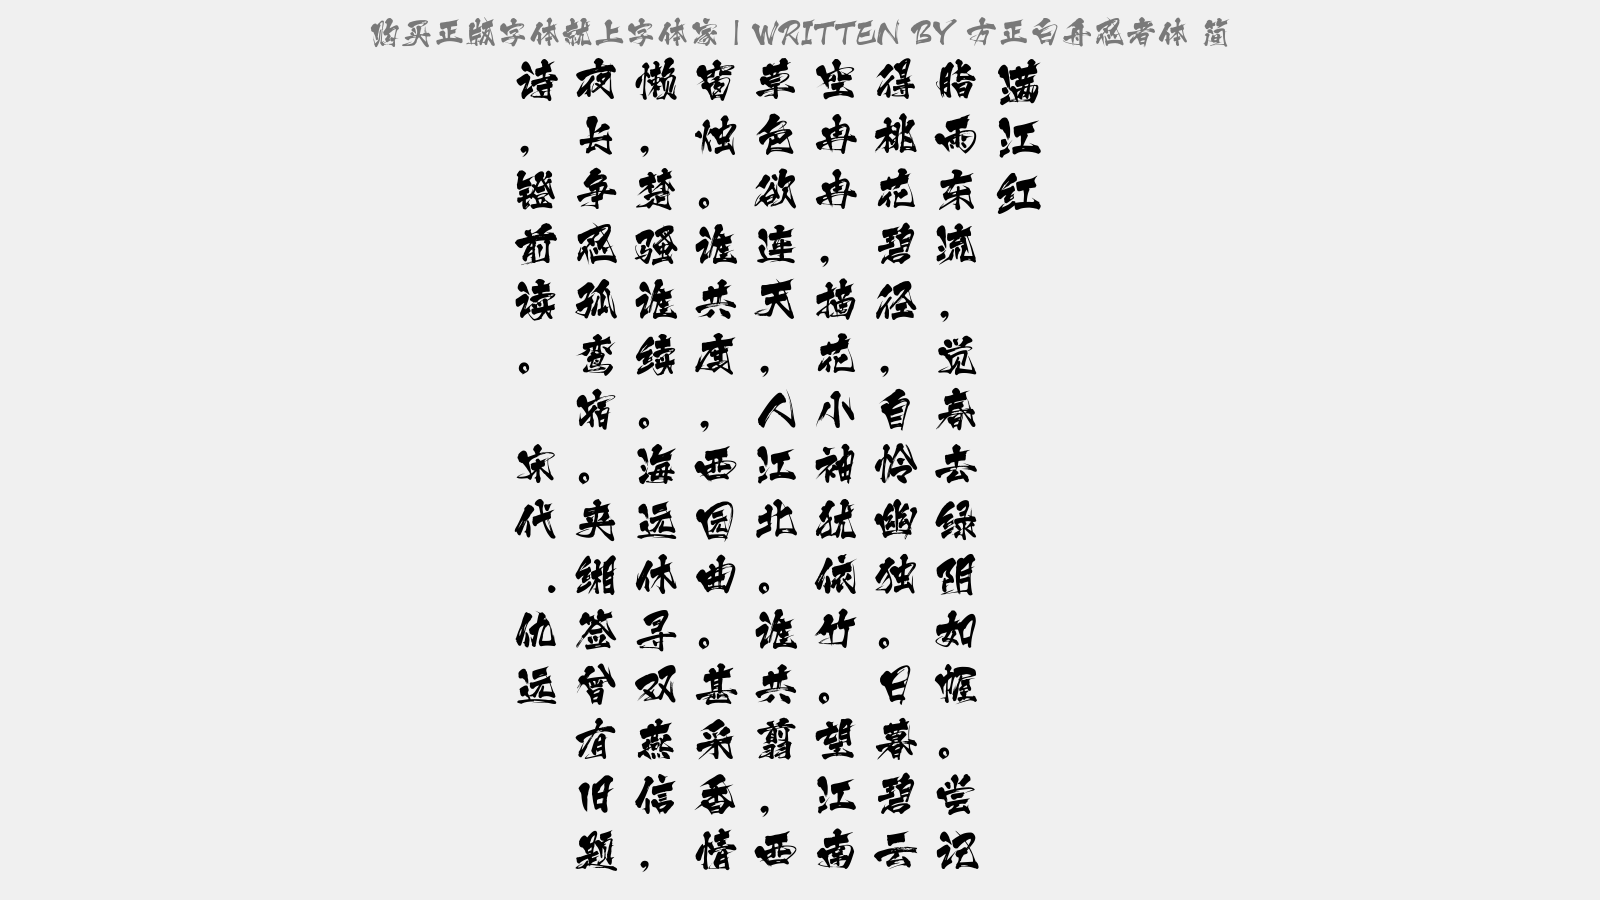 购买正版字体就上字体家 | WRITTEN BY 方正白舟忍者体 简
满江红
脂雨东流，觉春去绿阴如幄。尝记
得桃花碧径，自怜幽独。日暮碧云
空冉冉，摘花小袖犹依竹。望江南
草色欲连天，人江北。谁共翦，西
窗烛。谁共度，西园曲。甚采香情
懒，楚骚谁续。海远休寻双燕信，
夜长争忍孤鸾宿。夹缃签曾有旧题
诗，镫前读。 宋代.仇远